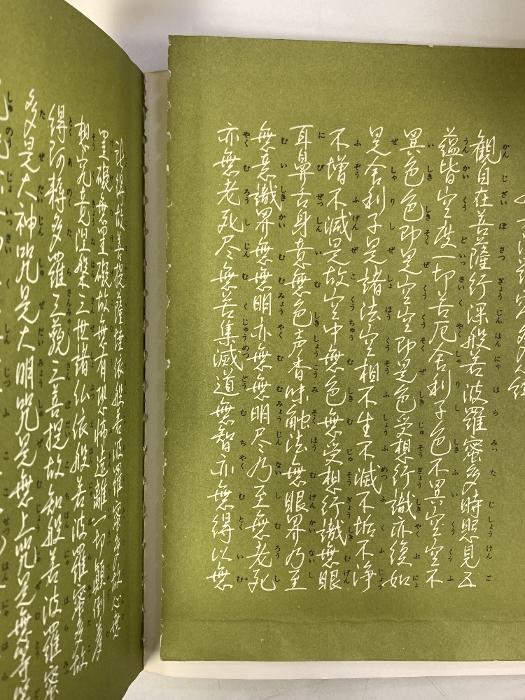 観自在菩薩行深般若波羅蜜多時照見五
蘊皆空度一切苦厄舎利子色不異空空不
異色色即是空空即是色受想行識亦復如
是舎利子是諸法空相不生不滅不垢不浄
不増不減是故空中無色無受想行識無眼
耳鼻舌身意無色声香味触法無眼界乃至
無意識界無無明亦無無明尽乃至無老死
亦無老死尽無苦集滅道無智亦無得以無
所得故菩提薩埵依般若波羅蜜多故心無
罣礙無罣礙故無有恐怖遠離一切顛倒夢
想究竟涅槃三世諸仏依般若波羅蜜多故
得阿耨多羅三藐三菩提故知般若波羅蜜
多是大神呪是大明呪是無上呪是無等等